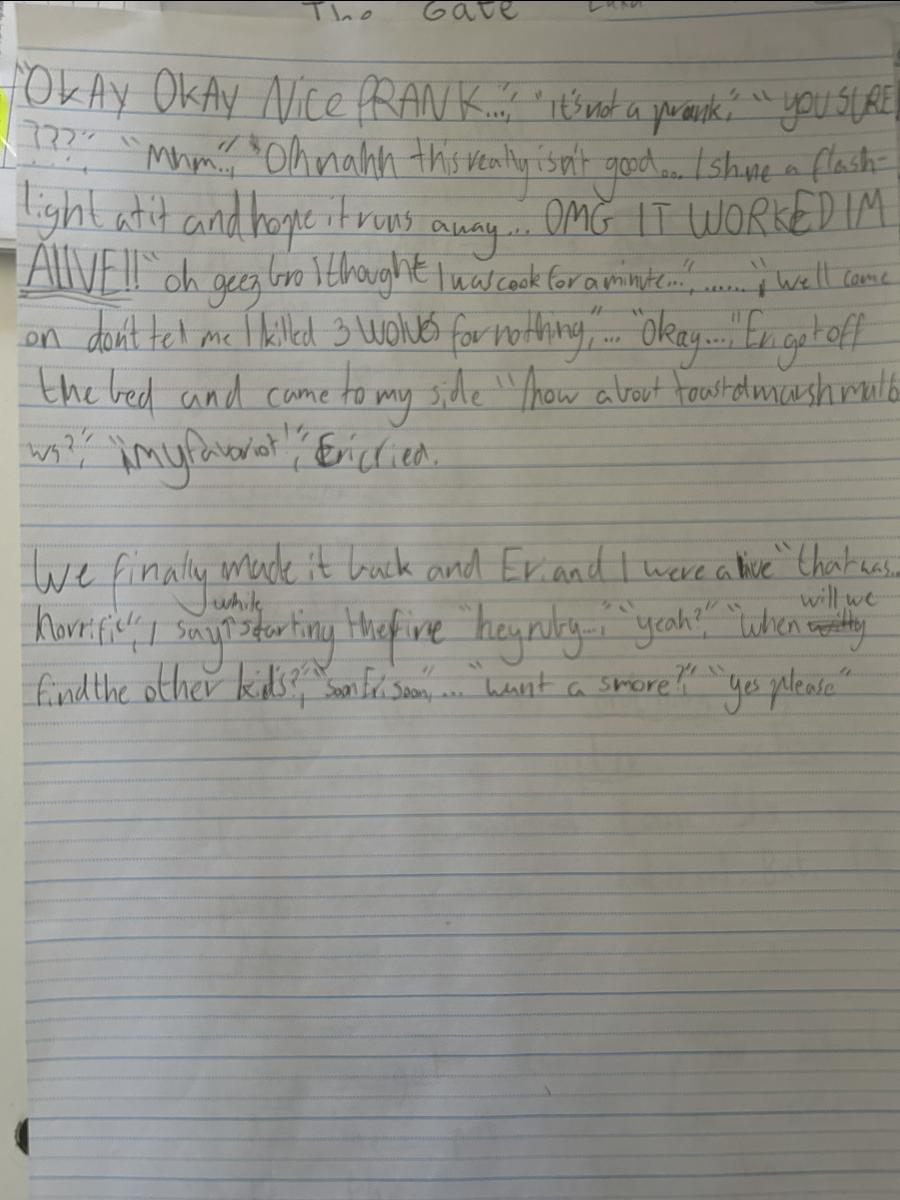 The Gate
"OkAY OkAY Nice PRANK...", "it's not a prank", "YOU SURE
???", "Mhm.", "Oh nahh this really isn't good... I shine a flash-
light at it and hope it runs away... OMG IT WORKED IM
ALIVE!!" oh geez bro I thought I was cook for a minute...", ......", "well come
on don't tell me I killed 3 WOLVES for nothing", ... "Okay...," Eri got off
the bed and came to my side "how about toastd marshmallo
ws?", "my favoriot!", Eri cried.
We finally made it back and Eri and I were alive "that was..
horrific", I say while starting the fire "hey ruby...", "yeah?", "when will we
find the other kids?", "soon Eri soon", ... "want a smore?", "yes please"